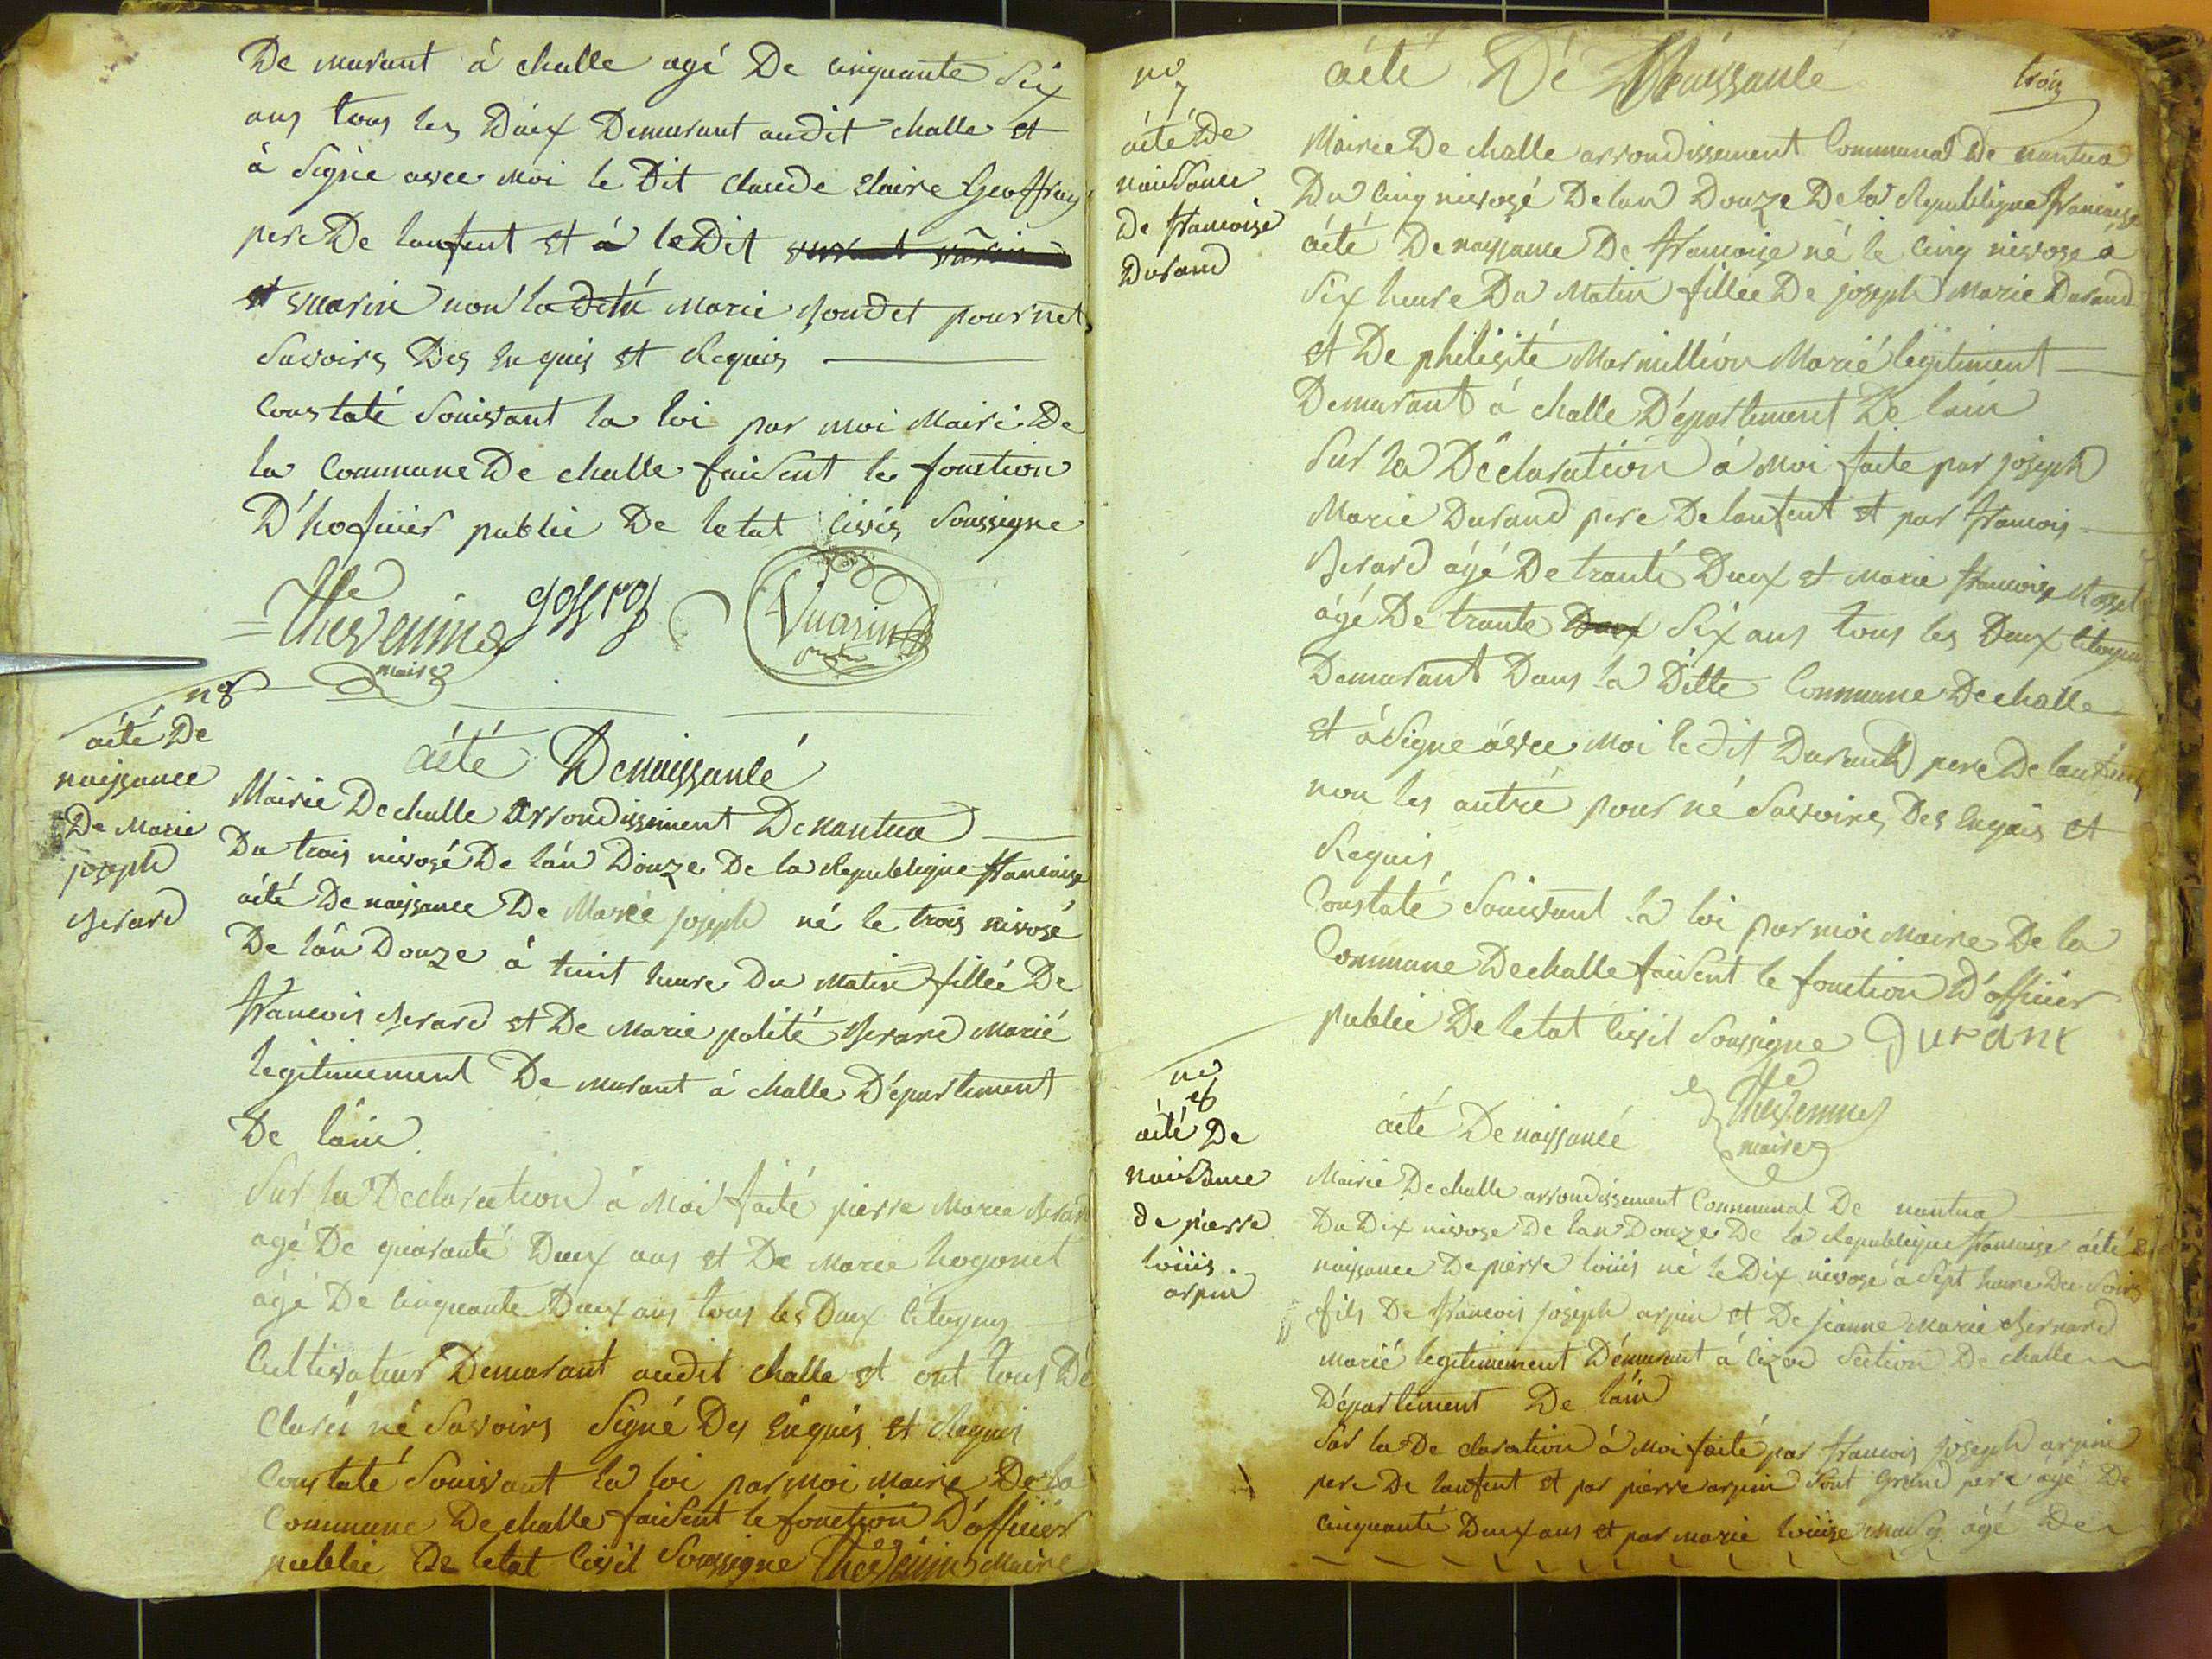 De murant á challe agé De cinquante Six
ans tous les Deux Demurant audit challe et
à Signe avec moi le Dit claude claire Geoffray
pere De lanfent et á le Dit
Vuarin non la Marie pour net
Savoirs Des Enquis et Requis
Constaté Souivant la loi par moi Maire De
la Commune De challe faisent le fonction
D'hoficier publie De letat civis Soussigne
Thevenin goffray Vuarin
maire
n
acté De
naissance
De Marie
joseph
Berard
acté De naissancé
Mairie De challe arrondissement De nantua
Du trois nivosé De lán Douze De la Republeigne francaise
acté De naissance De Mariée joseph né le trois nivosé
De lán Douze á huit heure Du Matin filleé De
francois Berard et De Marie polité Berard Marié
legitimement De murant á challe Département
De láin
Sur la Declaration á Moi faité pierre Marie Berard
agé De quaranté Deux ans et De Marie hogonet
ágé De cinquante Deux ans tous les Deux Citoyens
Cultivateur Demurant audit challe et ont tous Dé
Clarés né Savoirs Signé Des Enquis et Requis
Constaté Souivant la loi par Moi Maire De la
Commune De challe faisent le fonction D'officier
publie De letat Civil Soussigne Thevenin Maire
no
7
acté De
naisance
De francoise
Durand
acté Dé Naissancé
trois
Mairie De challe arrondissement Communal De nantua
Du Cinq nivosé De lan Douze De la Republigne francaise
acté De naissance De francoise né le Cinq nivose á
Six heure Du Matin filleé De joseph Marie Durand
et De philisité Marmillión Marié légitiment
Demurant á challe Département De láin
Sur la Déclaration á Moi faite par joseph
Marie Durand pere De lanfent et par francois
Berard ágé De tranté Deux et Marie francoise
ágé De trante Deux Six ans tous les Deux Citoyens
Demurant Dans la Ditte Commune De challe
et á Signe ávec Moi le Dit Durand pere De lanfent
non les autré pour né Savoirs Des Enquis et
Requis
Constaté Souivant la loi par moi Maire De la
Commune De challe faisent le fonction D'officier
publie De letat Civil Soussigne Durant
Thevenin
maire
no
8
acté De
naisance
De pierre
loüis
arpin
acté De naissancé
Mairie De challe arrondissement Communal De nantua
Du Dix nivose De lan Douze De la Republeigne francaise acté De
naissance De pierre loüis né le Dix nivosé á Sept heure Du Soirs
fils De francois joseph arpin et De jeanne Marie Bernard
marié legitimement Démurant á Cizod Section De challe
Département De láin
Sur la De claration á Moi faité par francois joseph arpin
pere De lanfent et par pierre arpin Sont Grand pere ágé De
cinquanté Deux ans et par marie loüise ágé De